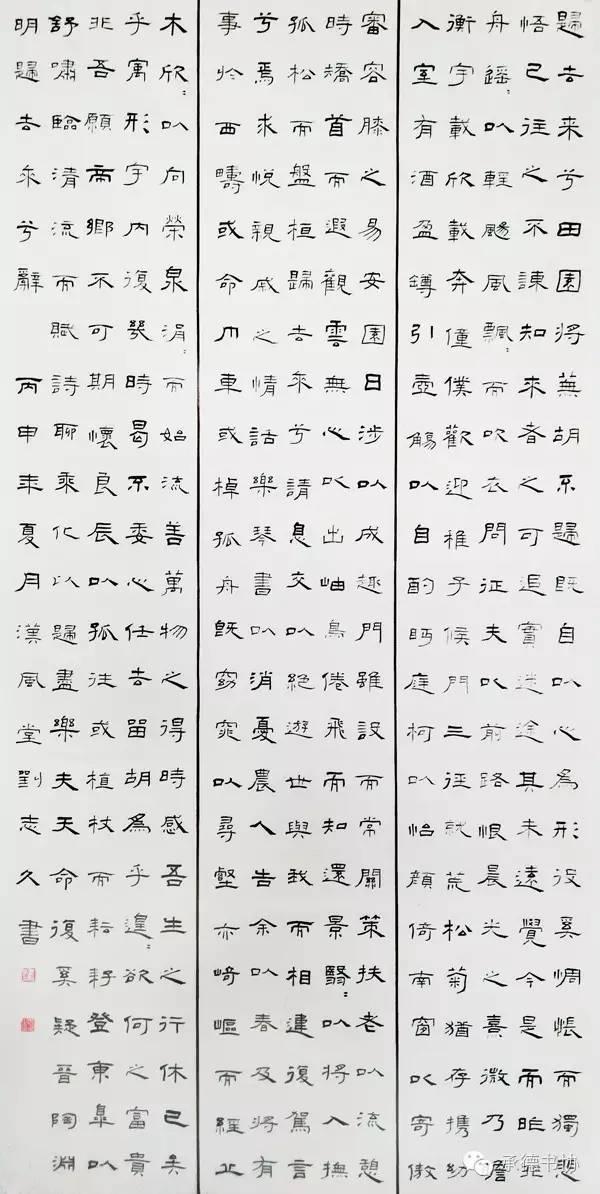 歸去来兮田園將蕪胡不歸既自以心為形役奚惆悵而獨悲
悟已往之不諫知来者之可追實迷途其未遠覺今是而昨非
舟遥:以輕颺風飄:而吹衣問征夫以前路恨晨光之熹微乃瞻
衡宇載欣載奔僮僕歡迎稚子候門三徑就荒松菊猶存携幼
入室有酒盈罇引壺觴以自酌眄庭柯以怡顔倚南窗以寄傲
審容膝之易安園日涉以成趣門雖設而常關策扶老以流憩
時矯首而遐觀雲無心以出岫鳥倦飛而知還景翳:以將入撫
孤松而盤桓歸去来兮請息交以絶遊世與我而相違復駕言
兮焉求悦親戚之情話樂琴書以消憂農人告余以春及將有
事於西疇或命巾車或棹孤舟既窈窕以尋壑亦崎嶇而經丘
木欣:以向榮泉涓:而始流善萬物之得時感吾生之行休已矣
乎寓形宇内復幾時曷不委心任去留胡為乎遑:欲何之富貴
非吾願帝鄉不可期懷良辰以孤往或植杖而耘耔登東皋以
舒嘯臨清流而賦詩聊乘化以歸盡樂夫天命復奚疑晉陶淵
明歸去来兮辭 丙申年夏月漢風堂劉志久書
承德书协